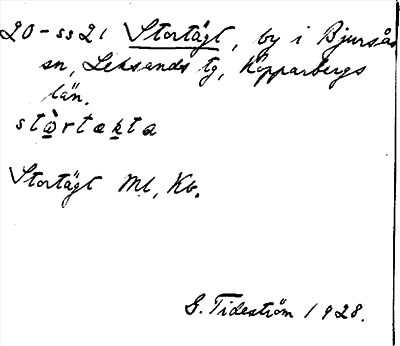 20-ss21 Stortägt, by i Bjursås
sn, Leksands tg, Kopparbergs
län.
stɷ̀rtækta
Stortägt Ml, Kb.
G. Tideström 1928.